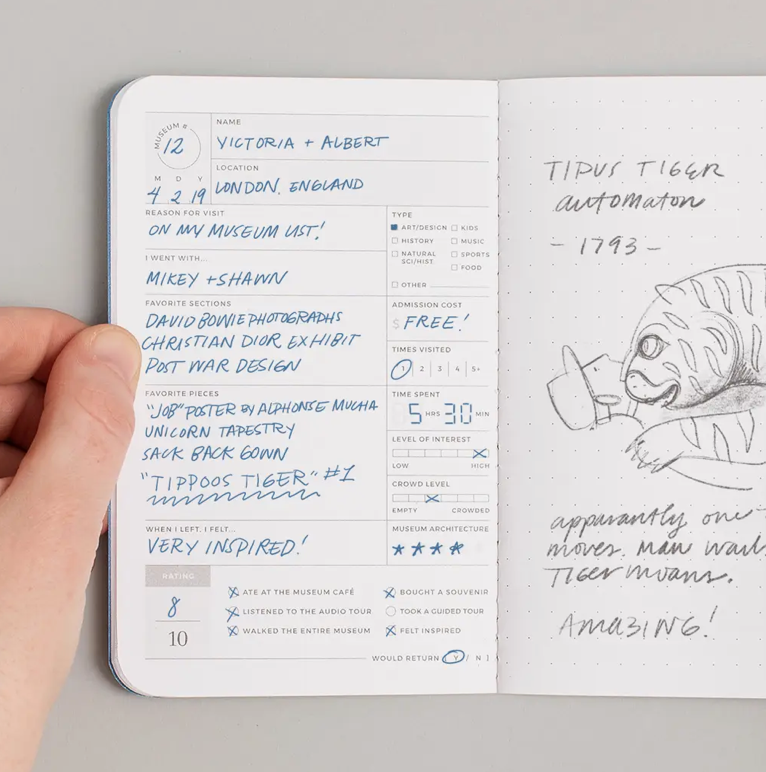 MUSEUM #
12
NAME
VICTORIA + ALBERT
LOCATION
LONDON, ENGLAND
M D Y
4 2 19
REASON FOR VISIT
ON MY MUSEUM LIST!
I WENT WITH...
MIKEY + SHAWN
FAVORITE SECTIONS
DAVID BOWIE PHOTOGRAPHS
CHRISTIAN DIOR EXHIBIT
POST WAR DESIGN
FAVORITE PIECES
"JOB" POSTER BY ALPHONSE MUCHA
UNICORN TAPESTRY
SACK BACK GOWN
"TIPPOOS TIGER" #1
WHEN I LEFT, I FELT...
VERY INSPIRED!
TYPE
ART/DESIGN KIDS
HISTORY MUSIC
NATURAL SPORTS
SCI/HIST
FOOD
OTHER
ADMISSION COST
$ FREE!
TIMES VISITED
1 | 2 | 3 | 4 | 5+
TIME SPENT
5 HRS 30 MIN
LEVEL OF INTEREST
LOW HIGH
CROWD LEVEL
EMPTY CROWDED
MUSEUM ARCHITECTURE
★★★★
RATING
8
10
ATE AT THE MUSEUM CAFÉ
LISTENED TO THE AUDIO TOUR
WALKED THE ENTIRE MUSEUM
BOUGHT A SOUVENIR
TOOK A GUIDED TOUR
FELT INSPIRED
WOULD RETURN [ Y / N ]
TIPUS TIGER
automaton
- 1793 -
apparantly one
moves. Man
Tiger moans.
AMAZING!